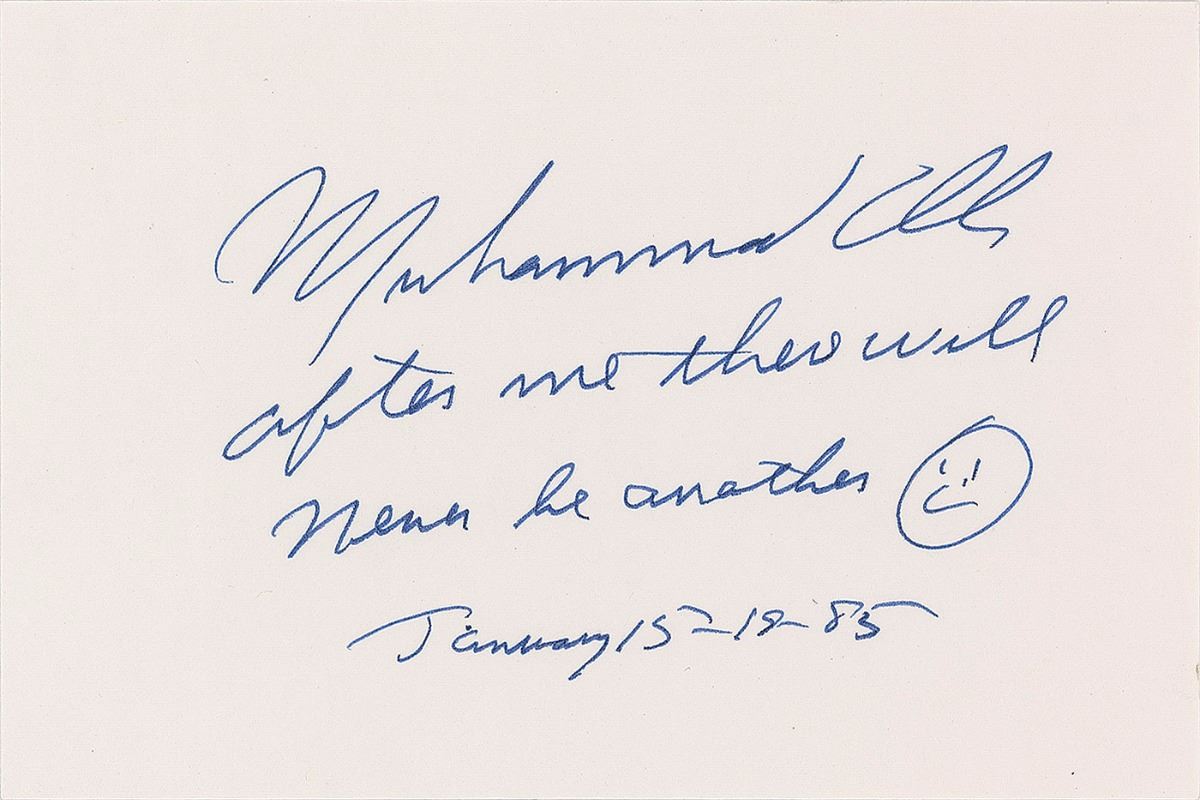 Muhammad Ali
after me there will
Never be another
January 15-19-85